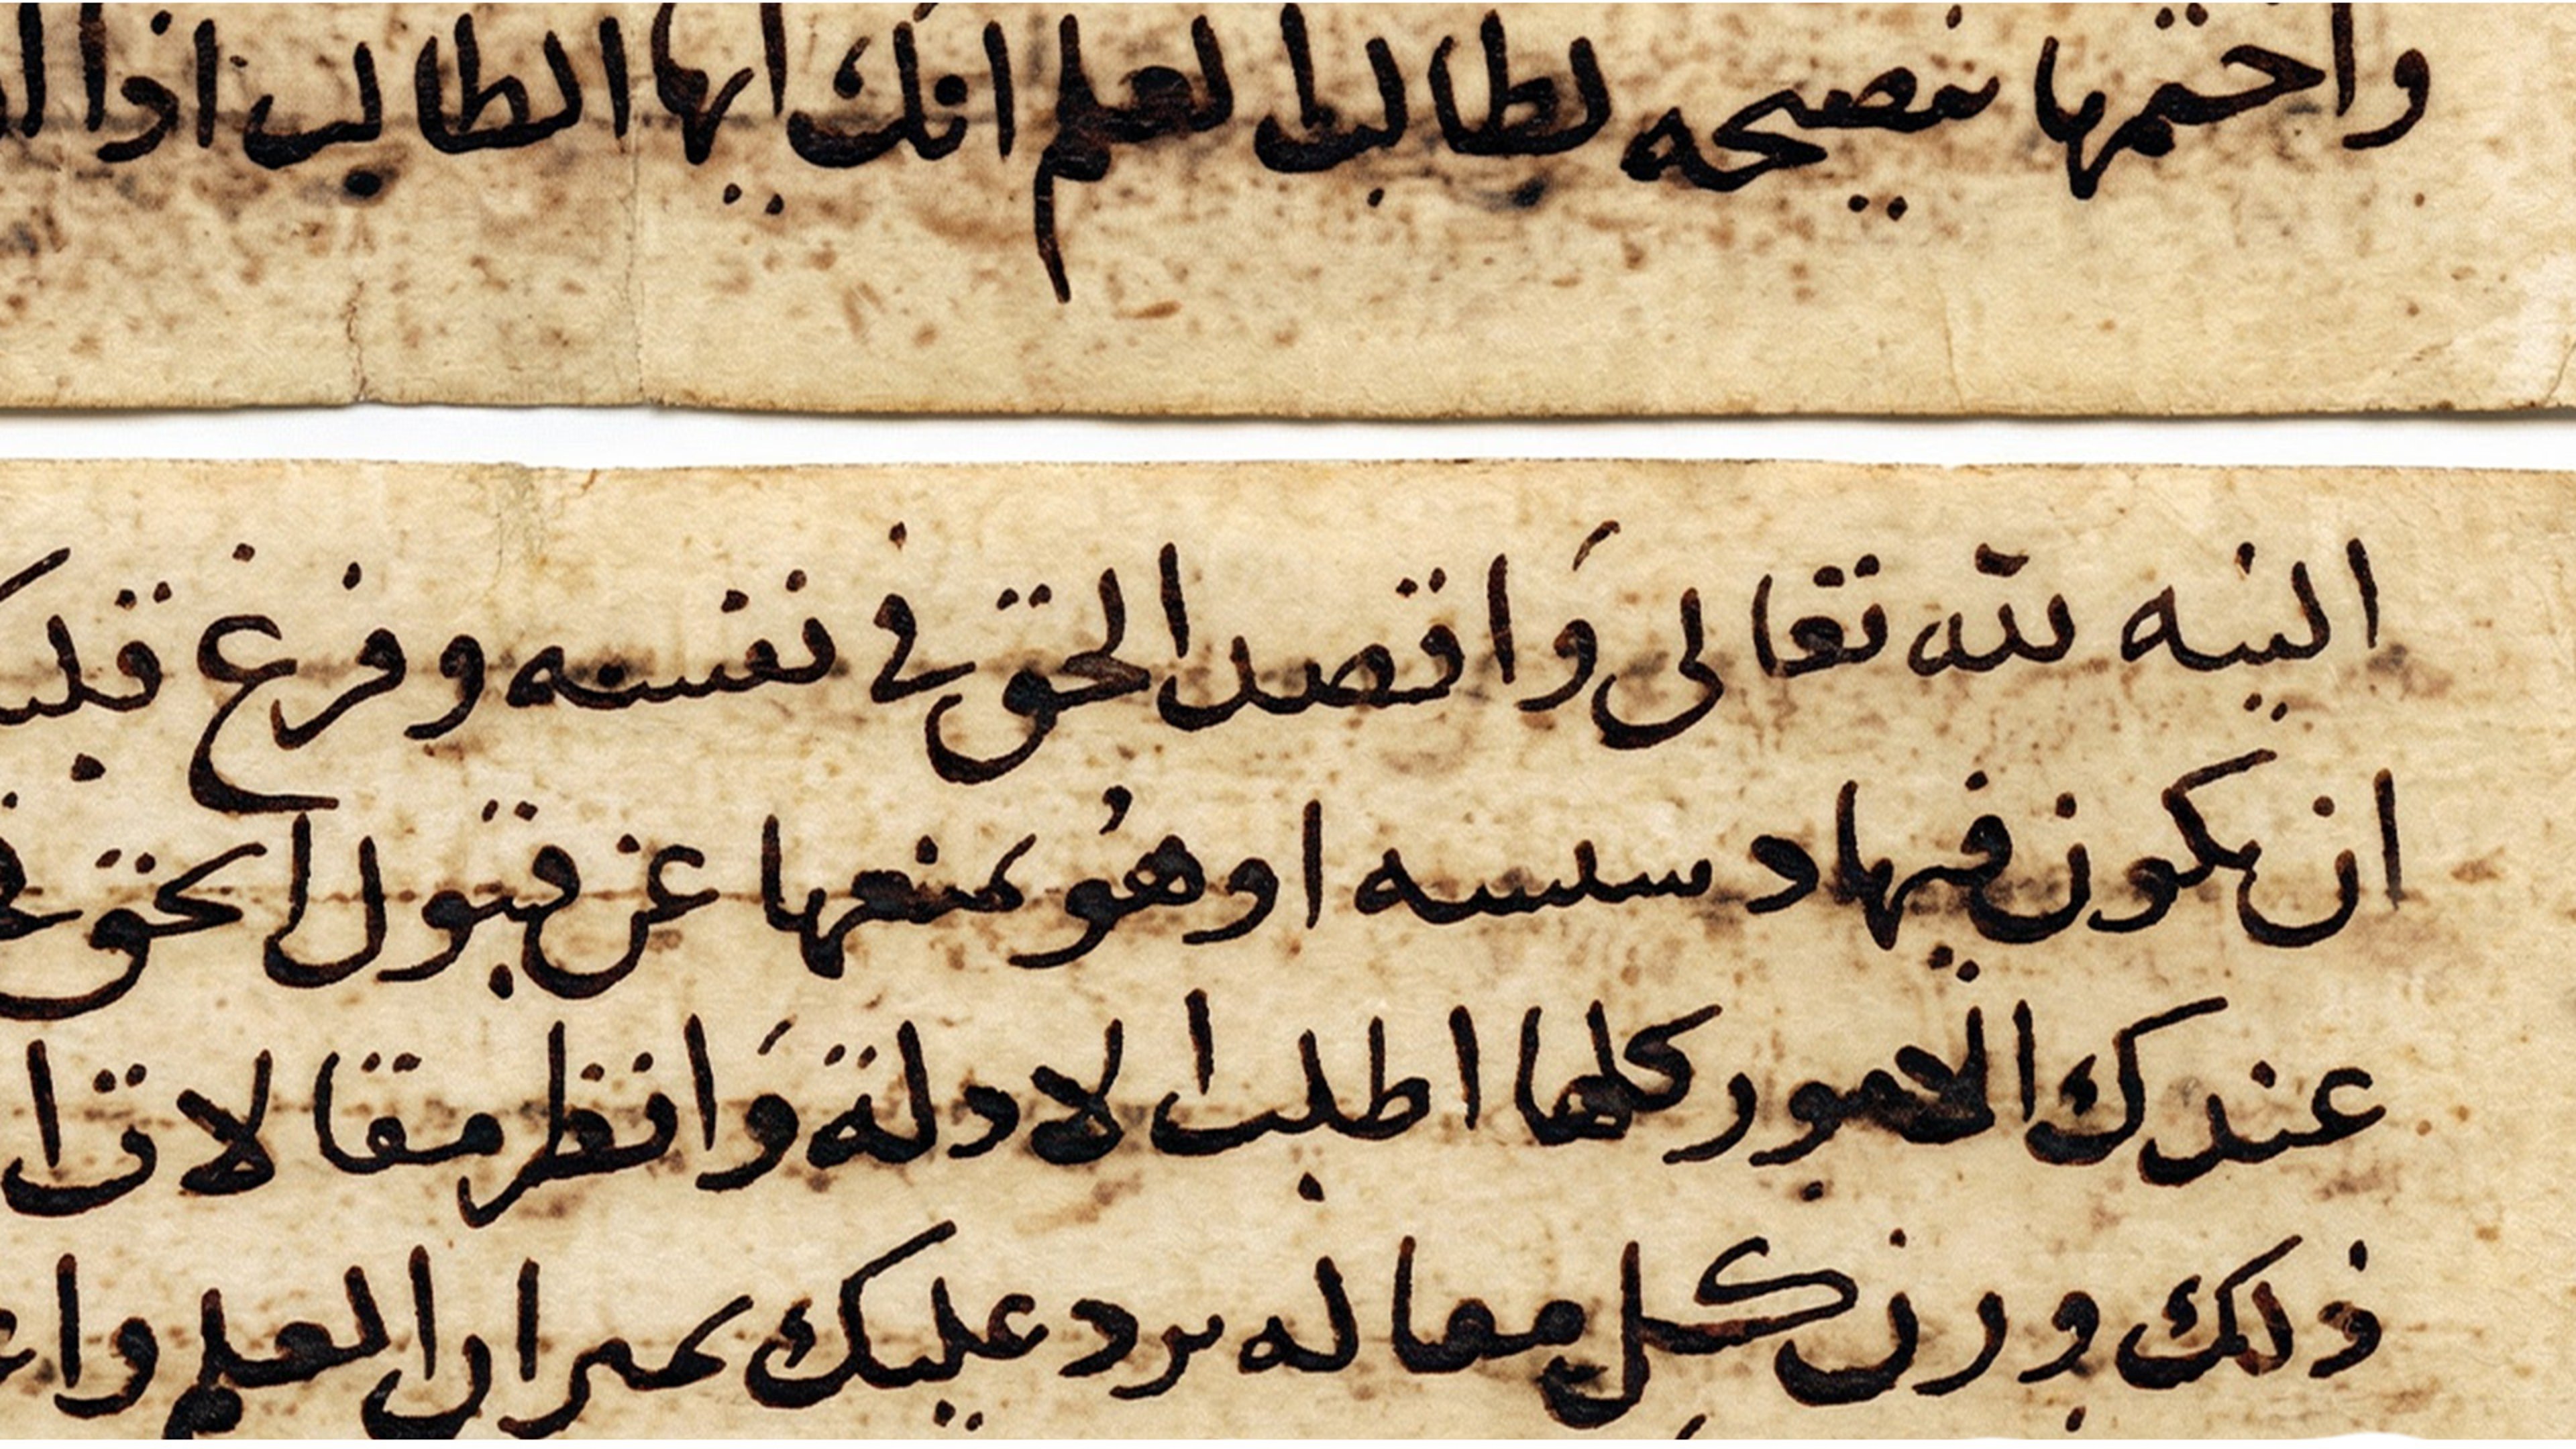 واختمها بنصيحه لطالب العلم انك ايها الطالب اذا
النيه لله تعالى وَاقصد الحق في نفسه وفرغ
ان يكون فيها دسسه او هُو يمنعها عن قبول الحق
عندك الامور كلها اطلب الادلة وَانظر مقالات ا
ذلك وزن كل مقاله يرد عليك بميزان العلم وا